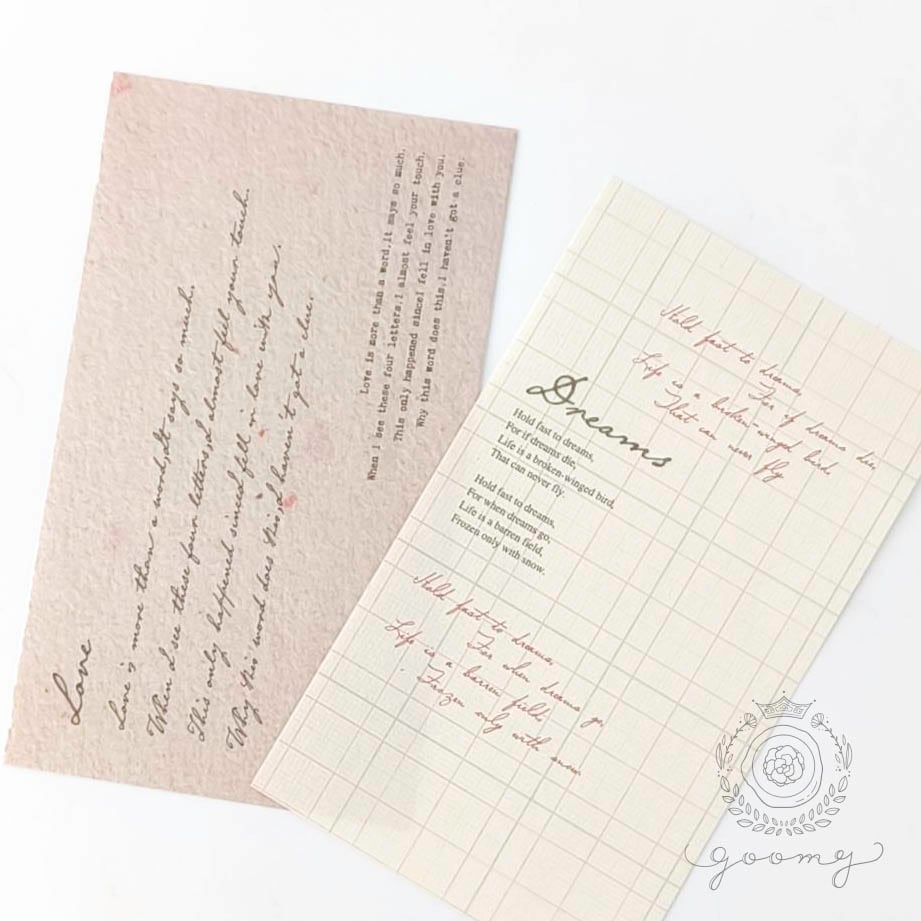 Love
Love is more than a word,It says so much.
When I see these four letters,I almost feel your touch.
This only happened sinceI fell in love with you.
Why this word does this,I haven't got a clue.
Love is more than a word,It says so much.
When I see these four letters,I almost feel your touch.
This only happened sinceI fell in love with you.
Why this word does this,I haven't got a clue.
Hold fast to dreams,
For if dreams die,
Life is a broken-winged bird,
That can never fly
Dreams
Hold fast to dreams,
For if dreams die,
Life is a broken-winged bird,
That can never fly.
Hold fast to dreams,
For when dreams go,
Life is a barren field,
Frozen only with snow.
Hold fast to dreams,
For when dreams go,
Life is a barren field,
Frozen only with snow
goomg